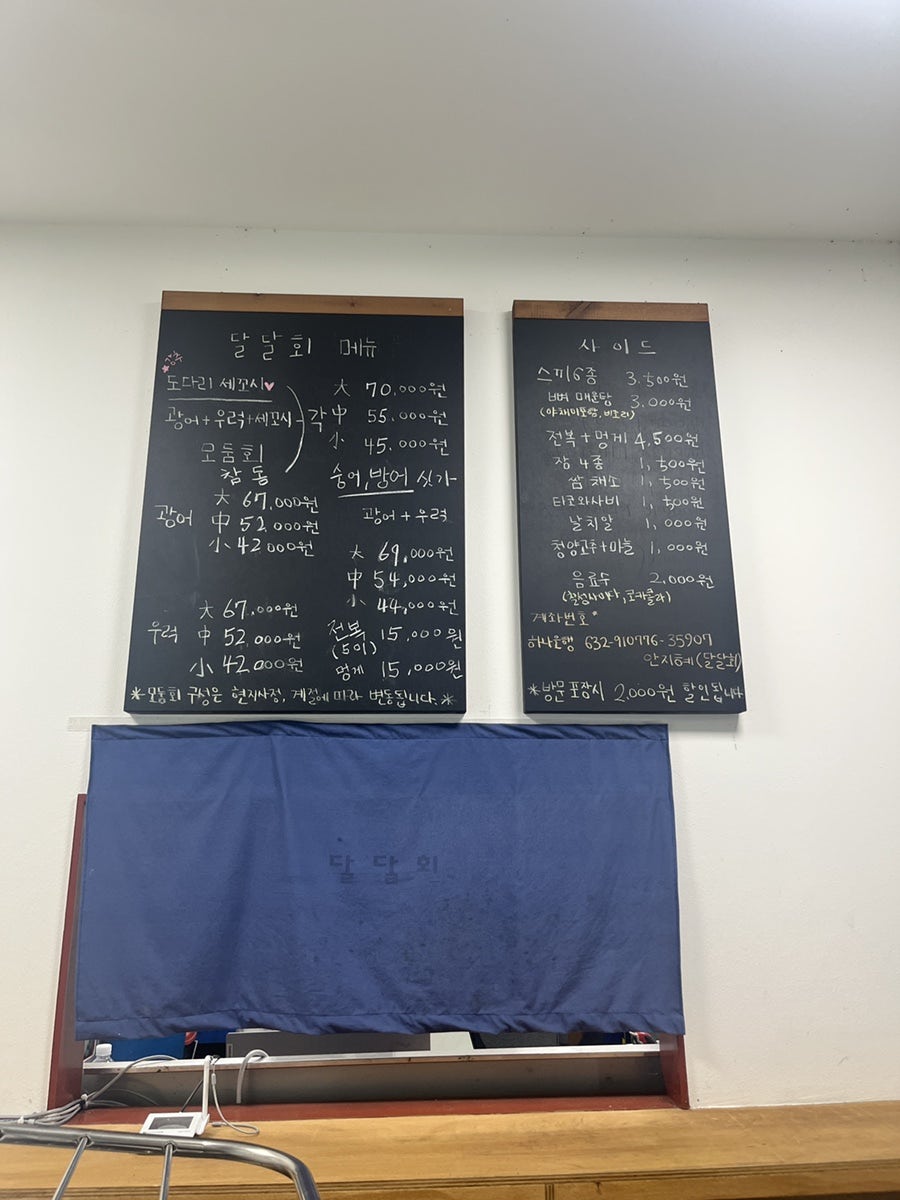 달달회 메뉴
강추
도다리 세꼬시♥
광어+우럭+세꼬시
모둠회
참돔
각
大 70.000원
中 55.000원
小 45.000원
숭어,방어 싯가
광어
大 67.000원
中 52.000원
小 42000원
광어+우럭
大 69,000원
中 54,000원
小 44,000원
우럭
大 67.000원
中 52.000원
小 42.000원
전복 15.000원
(5미)
멍게 15,000원
*모둠회 구성은 현지사정, 계절에 따라 변동됩니다.*
사이드
스끼6종 3.500원
뼈 매운탕 3.000원
(야채미포함, 비조리)
전복+멍게 4,500원
장 4종 1,500원
쌈 채소 1,500원
타코와사비 1,500원
날치알 1,000원
청양고추+마늘 1,000원
음료수 2,000원
(칠성사이다, 코카콜라)
계좌번호*
하나은행 632-910776-35907
안지혜(달달회)
*방문 포장시 2,000원 할인됩니다
달달회